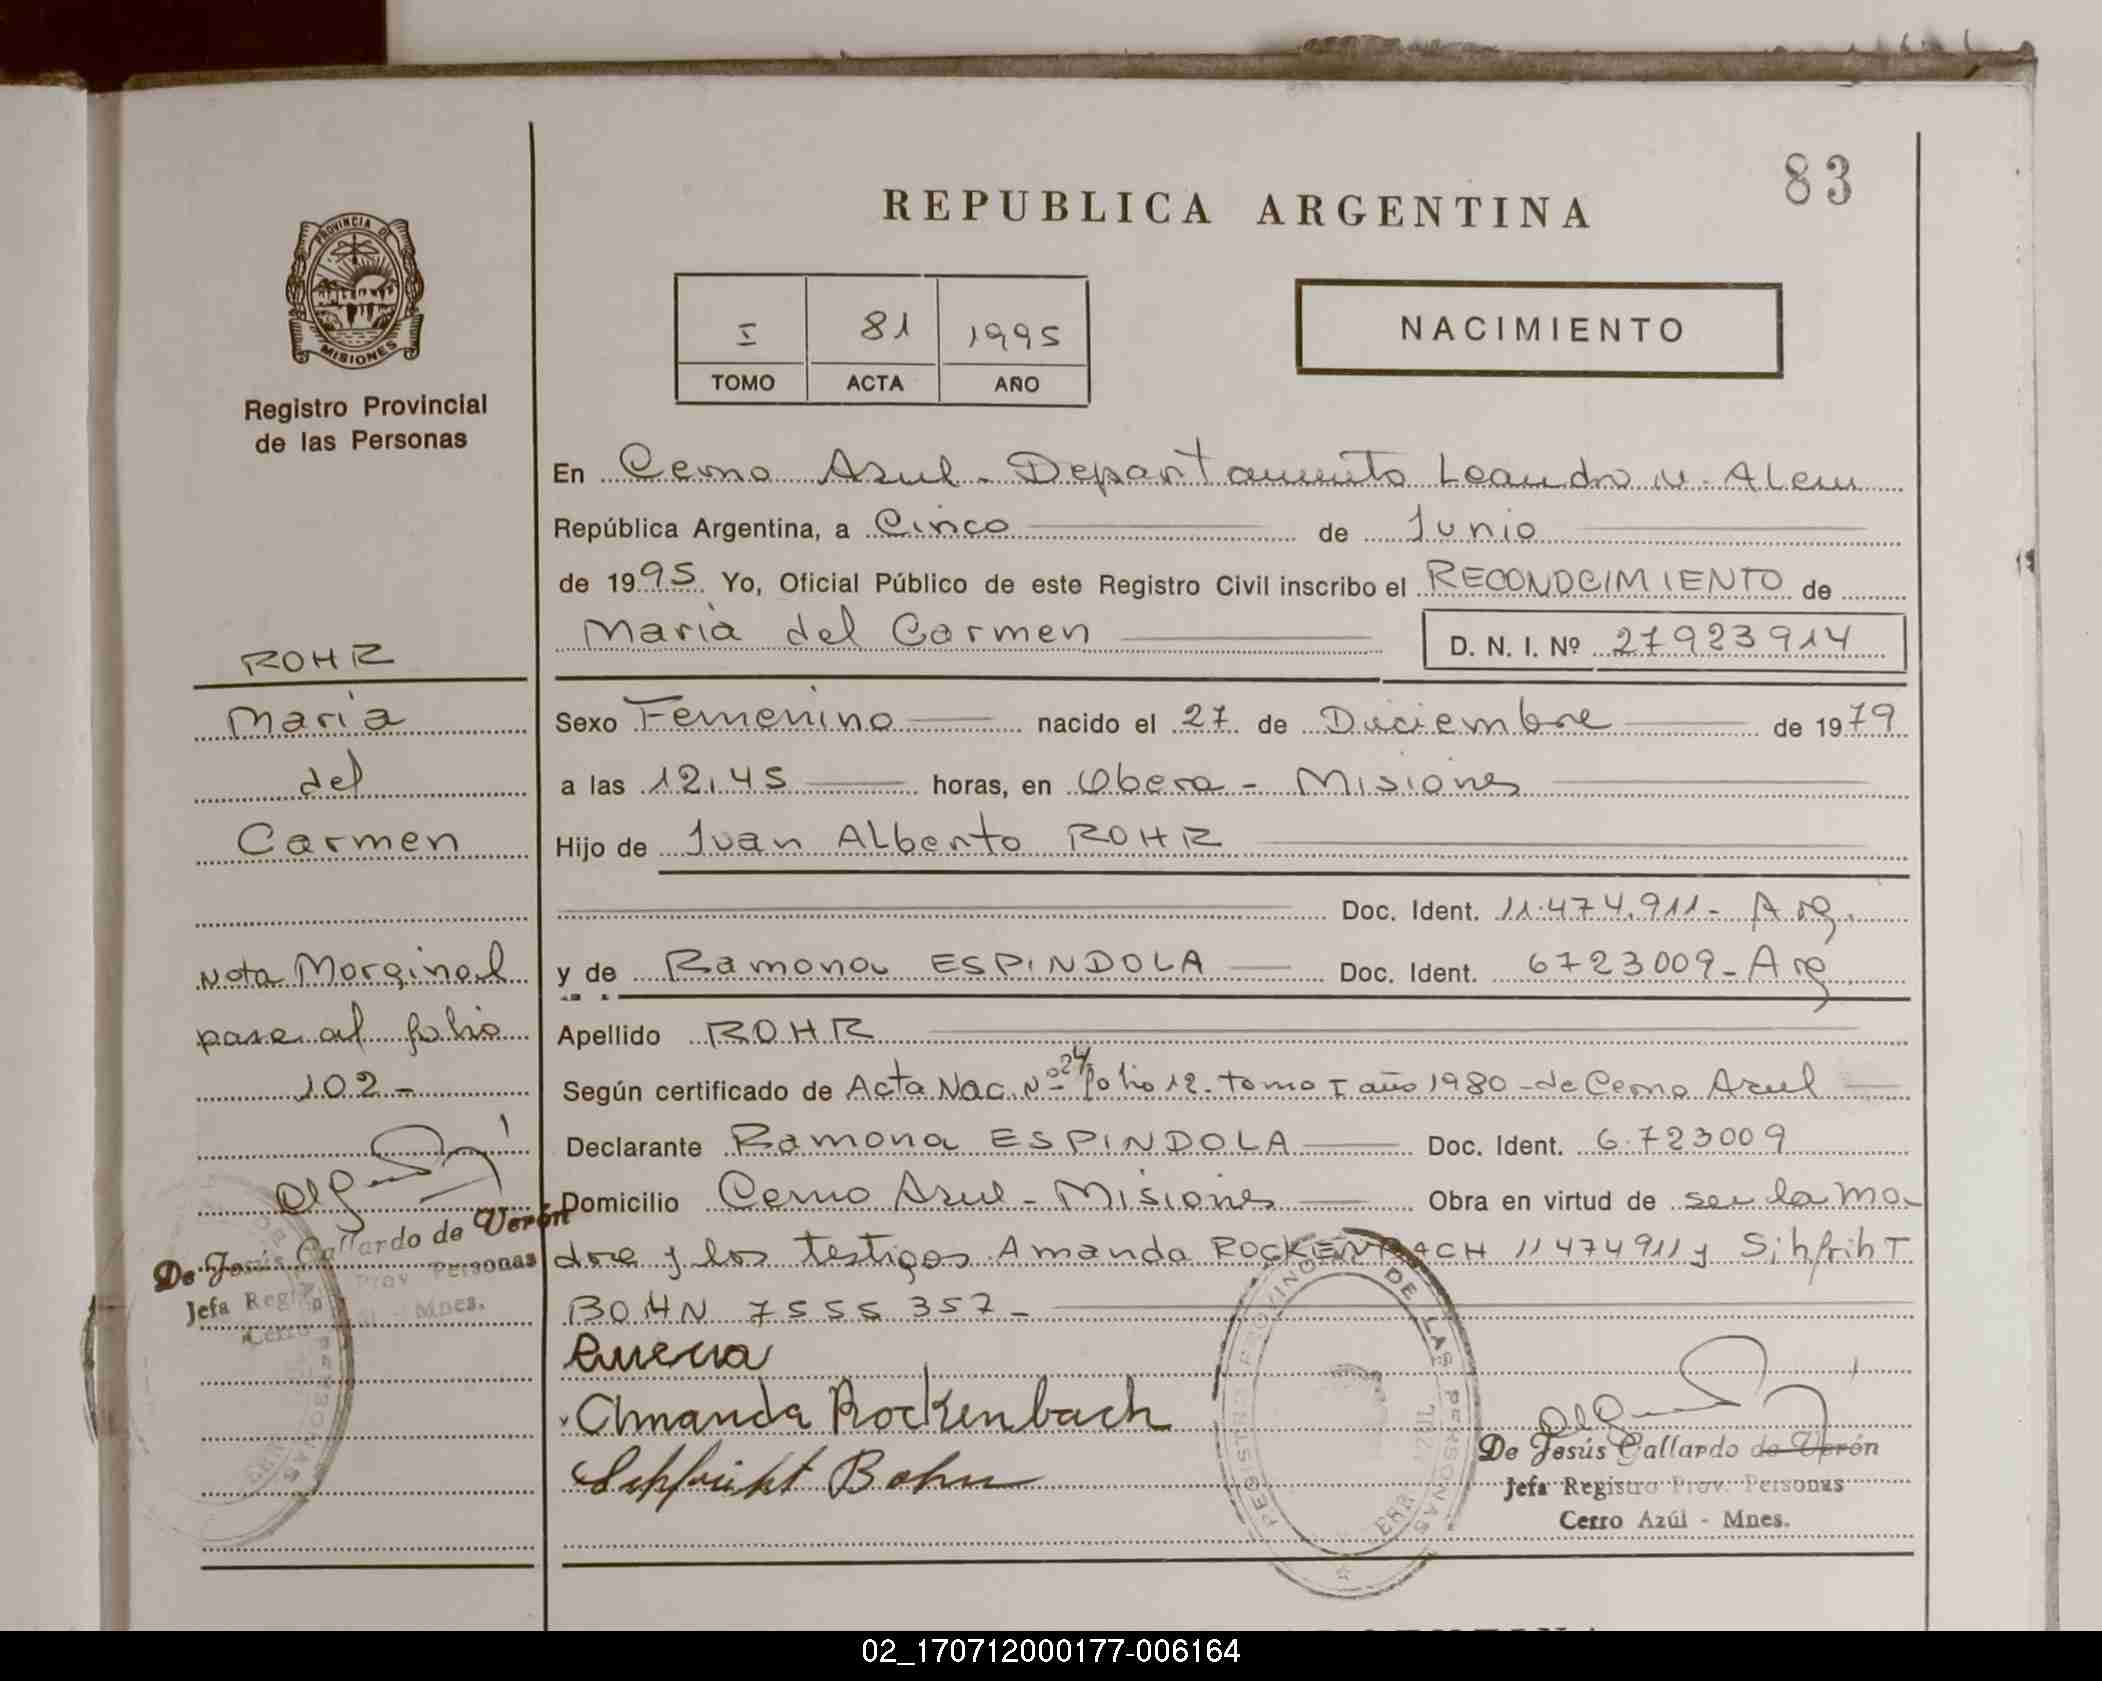 83
REPUBLICA ARGENTINA
PROVINCIA D
MISIONES
Registro Provincial
de las Personas
I 81 1995
TOMO ACTA AÑO
NACIMIENTO
En Cerro Azul - Departamento Leandro N. Alem
República Argentina, a Cinco de Junio
de 1995 Yo, Oficial Público de este Registro Civil inscribo el RECONOCIMIENTO de
Maria del Carmen D. N. I. Nº 27923914
Sexo Femenino nacido el 27 de Diciembre de 1979
a las 12,45 horas, en Obera - Misiones
Hijo de Juan Alberto ROHR
Doc. Ident. 11.474.911 - Arg.
y de Ramona ESPINDOLA Doc. Ident. 6723009 - Arg
Apellido ROHR
Según certificado de Acta Nac. Nº 024 folio 12 - tomo I año 1980 - de Cerro Azul
Declarante Ramona ESPINDOLA Doc. Ident. 6.723009
Domicilio Cerro Azul - Misiones Obra en virtud de ser la ma-
dre y los testigos Amanda ROCKENBACH 11474911 y Sihfriht
BOHN 7555357 -
Amanda Rockenbach
Bohn
De Jesús Gallardo de Verón
Jefa Registro Prov. Personas
Cerro Azúl - Mnes.
REGISTRO PROVINCIAL DE LAS PERSONAS
ROHR
Maria
del
Carmen
Nota Marginal
pase al folio
102 -
De Jesús Gallardo de Verón
Jefa Registro Prov Personas
Cerro Azúl - Mnes.
02_170712000177-006164